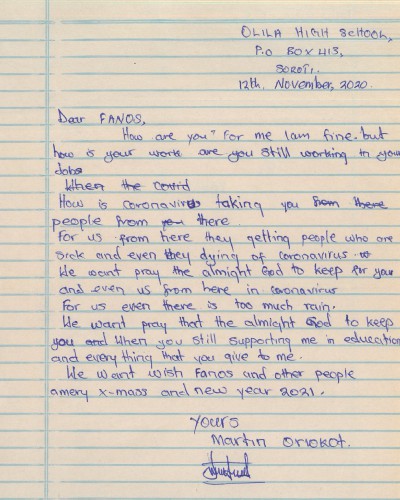 OLILA HIGH SCHOOL,
P.O BOX 413,
SOROTI,
12th, November, 2020.
Dear FANOS,
How are you? For me I am fine. but
how is your work are you still working in your
Jobs
When the covid
How is coronavirus taking you from there
people from you there.
For us from here they getting people who are
sick and even they dying of coronavirus
We want pray the almight God to keep for you
and even us from here in coronavirus
For us even there is too much rain.
We want pray that the almight God to keep
you and when you still supporting me in education
and every thing that you give to me.
We want wish Fanos and other people
amery x-mass and new year 2021.
Yours
Martin Oriokot.